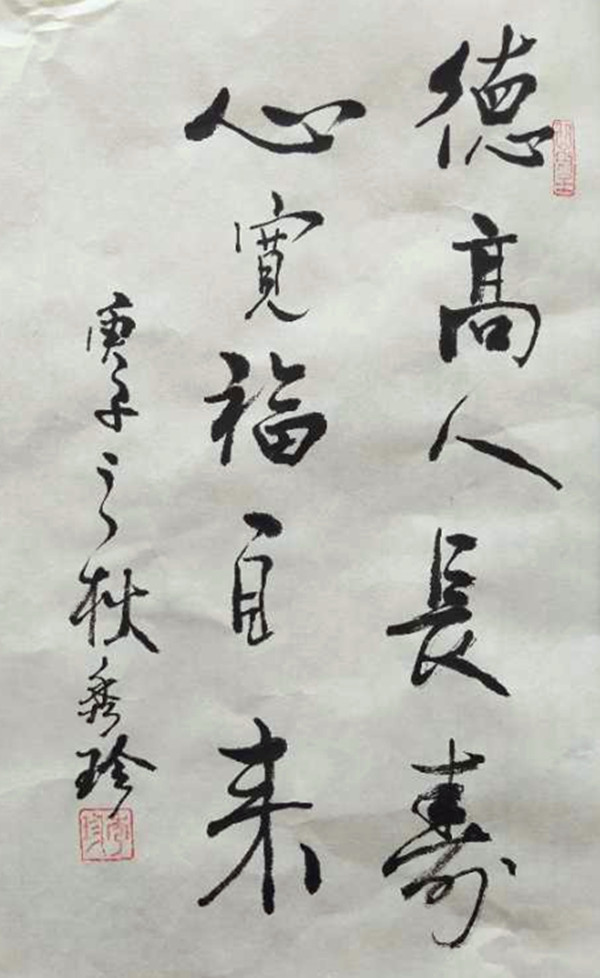 德高人長壽
心寬福自来
庚子之秋秀珍